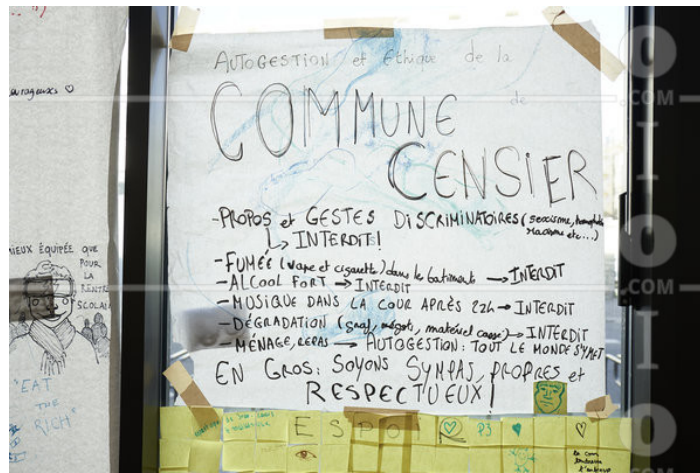 AUTOGESTION et éthique de la
COMMUNE de
CENSIER
-PROPOS et GESTES DISCRIMINATOIRES (sexisme,
racisme etc...)
↳ INTERDITS!
-FUMÉE (vape et cigarette) dans le batiments → INTERDIT
-ALCOOL FORT → INTERDIT
-MUSIQUE DANS LA COUR APRÈS 22h → INTERDIT
-DÉGRADATION (graf, mégots, matériel cassé) → INTERDIT
-MÉNAGE, REPAS → AUTOGESTION: TOUT LE MONDE S'Y MET
EN GROS: SOYONS SYMPAS, PROPRES et
RESPECTUEUX!
ESPOIR
P3
MIEUX ÉQUIPÉE QUE
POUR
LA
RENTR
SCOLAI
"EAT
THE
RICH"
.COM
.COM